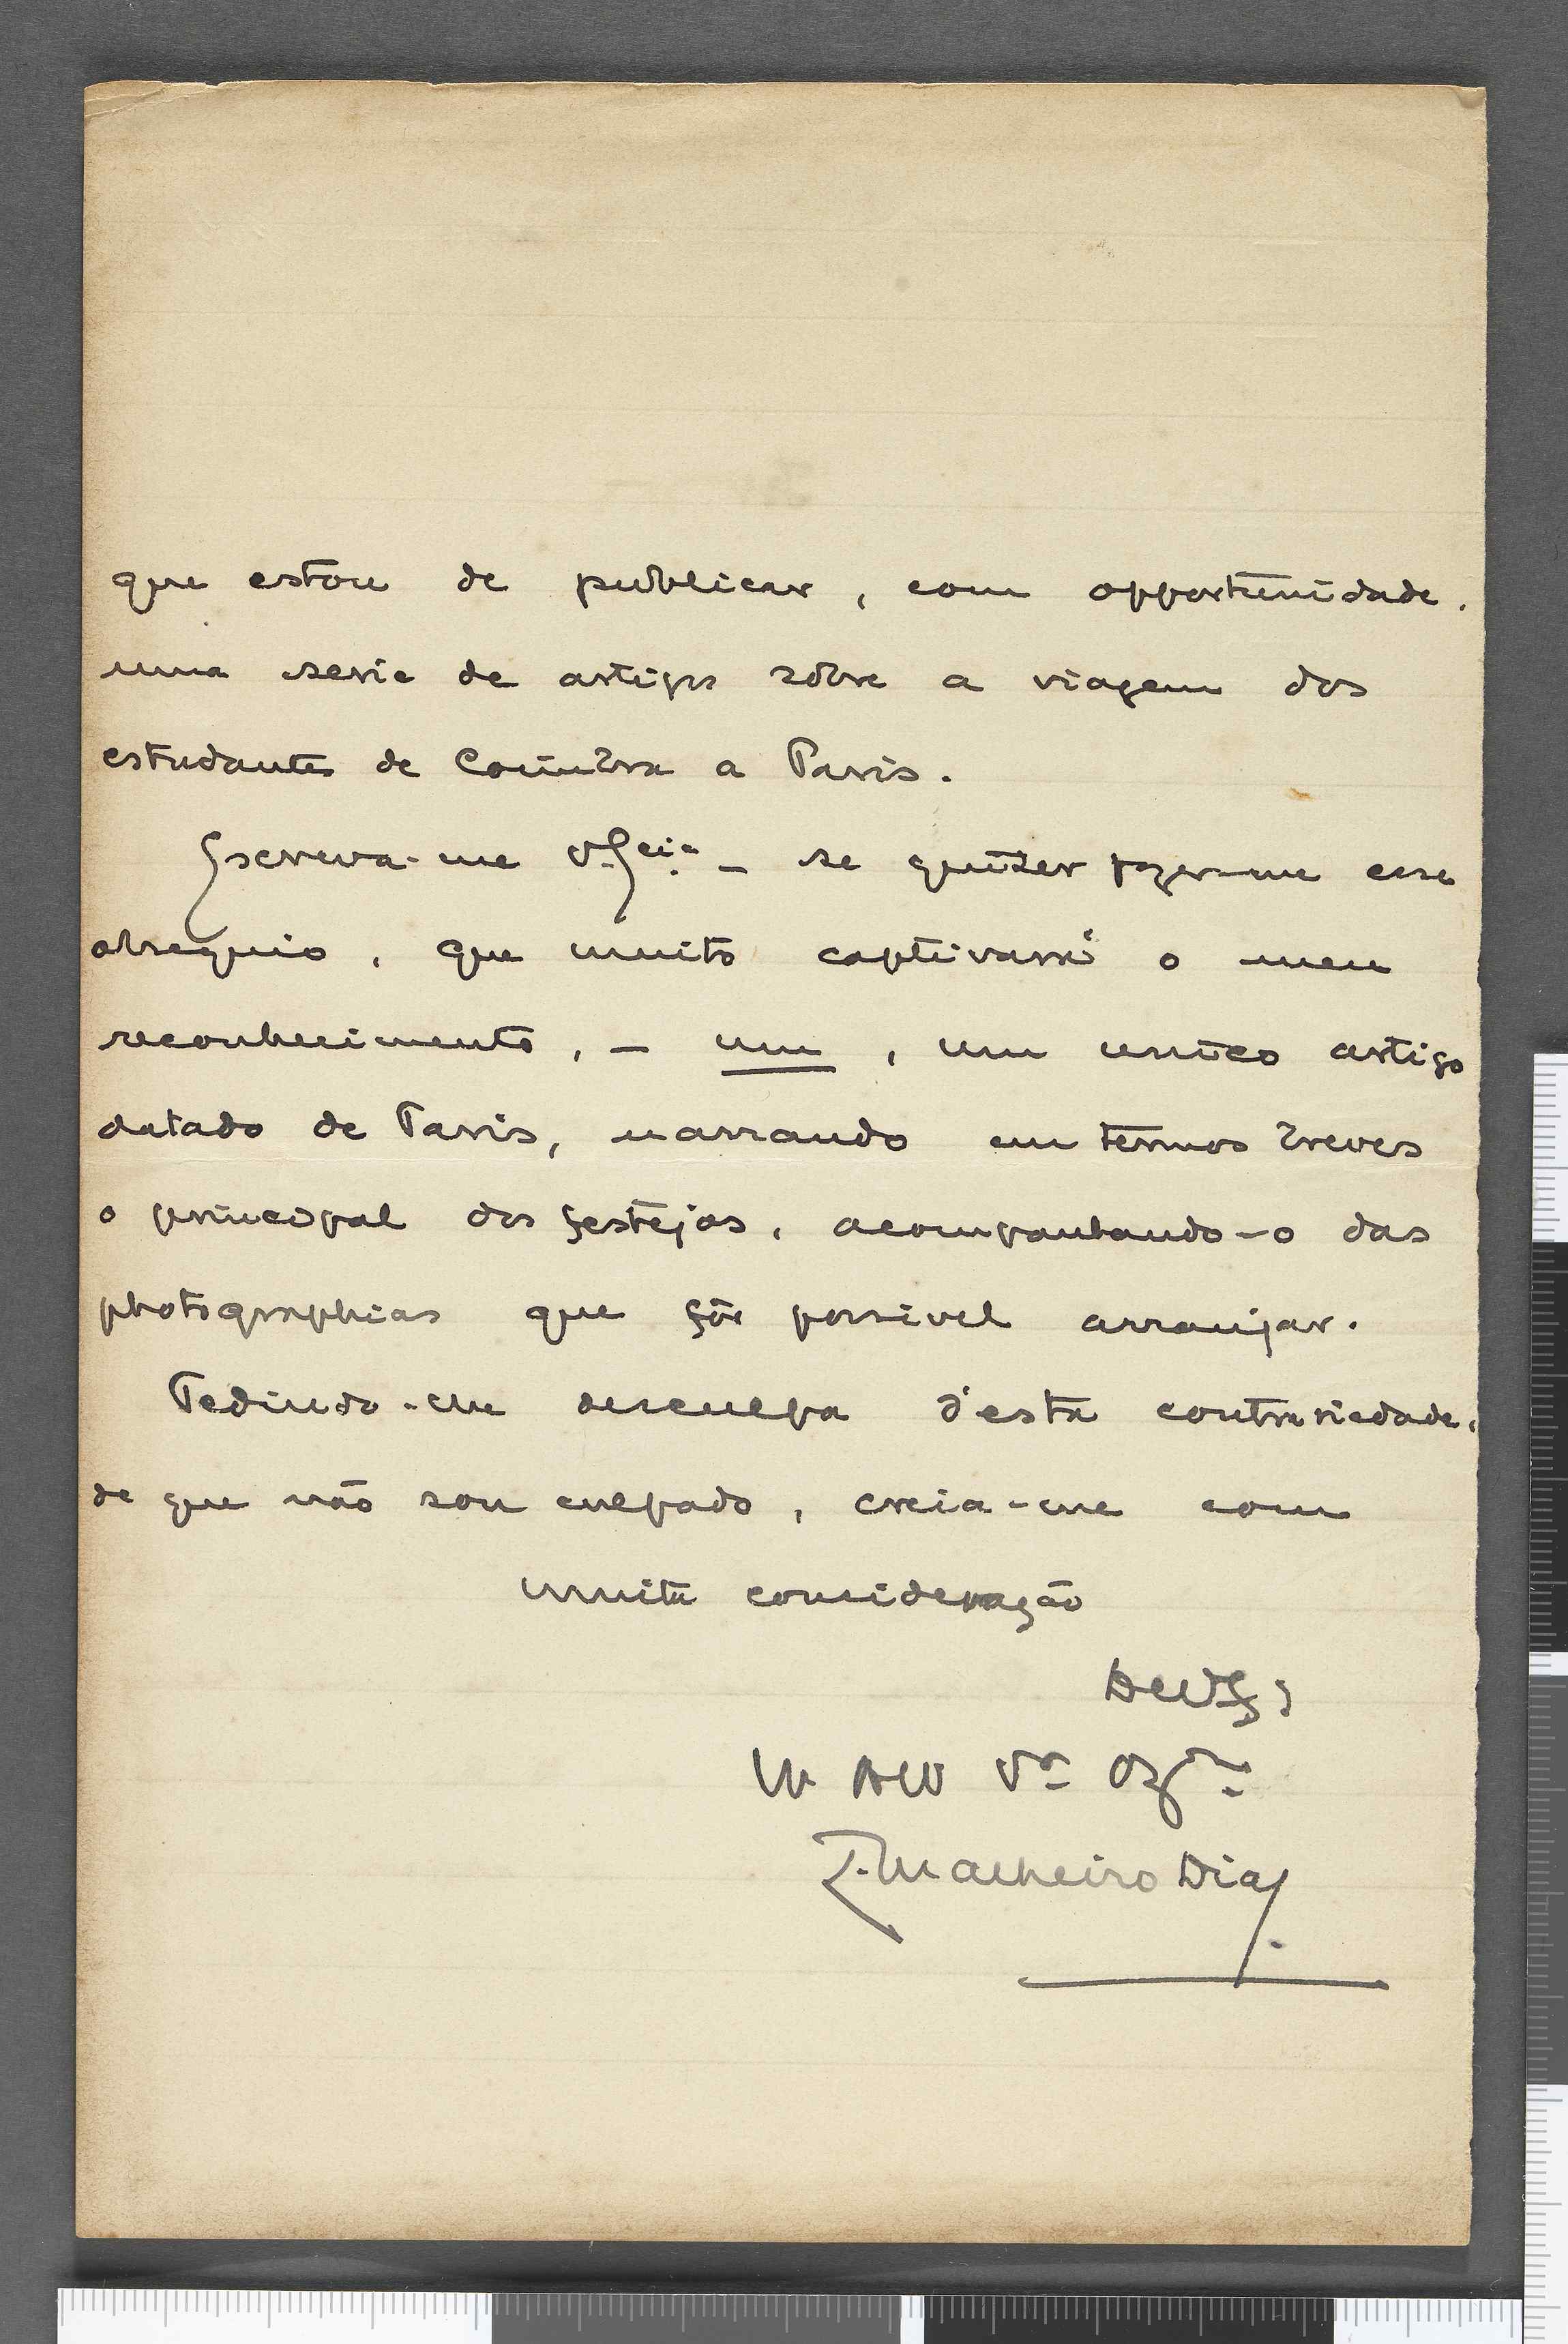 que estou de publicar, com opportunidade,
uma serie de artigos sôbre a viagem dos
estudantes de Coimbra a Paris.
Escreva-me V. Ex.cia – se quizer fazer-me esse
obsequio, que muito captivará o meu
reconhecimento, – um, um unico artigo
datado de Paris, narrando em termos breves
o principal dos festejos, acompanhando-o das
photographias que fôr possivel arranjar.
Pedindo-lhe desculpa d'esta contrariedade,
de que não sou culpado, creia-me com
muita consideração
De V. Ex.
Malheiro Dias.